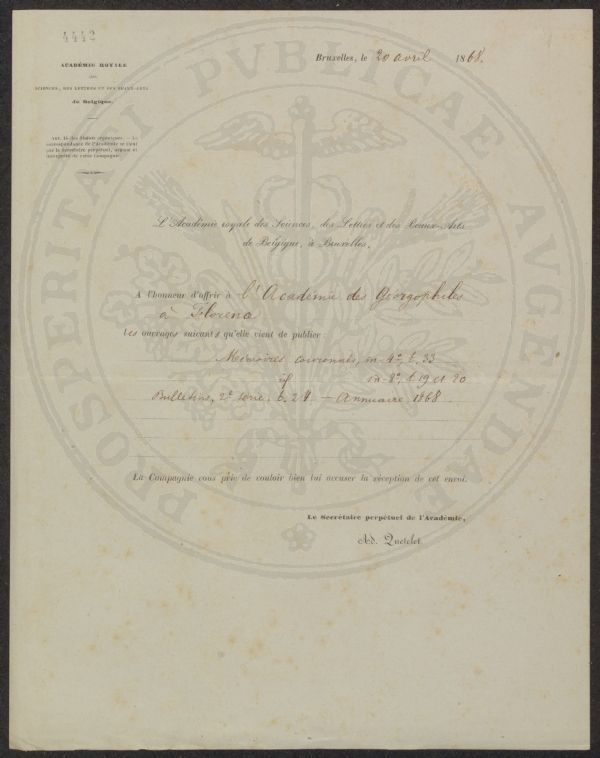 4442
Bruxelles, le 20 avril 1868.
ACADÉMIE ROYALE
DES
SCIENCES, DES LETTRES ET DES BEAUX-ARTS
de Belgique.
ART. 15 des Statuts organiques. — La
correspondance de l'Académie se tient
par le Secrétaire perpétuel, organe et
interprète de cette Compagnie.
PROSPERITATI PVBLICAE AVGENDAE
L'Académie royale des Sciences, des Lettres et des Beaux-Arts
de Belgique, à Bruxelles,
A l'honneur d'offrir à l'Académie des Georgophiles
à Florence
les ouvrages suivants qu'elle vient de publier :
Mémoires couronnés, in-4°, t. 33
id. in-8°, t. 19 et 20
Bulletins, 2e série, t. 24. — Annuaire 1868.
La Compagnie vous prie de vouloir bien lui accuser la réception de cet envoi.
Le Secrétaire perpétuel de l'Académie,
Ad. Quetelet.